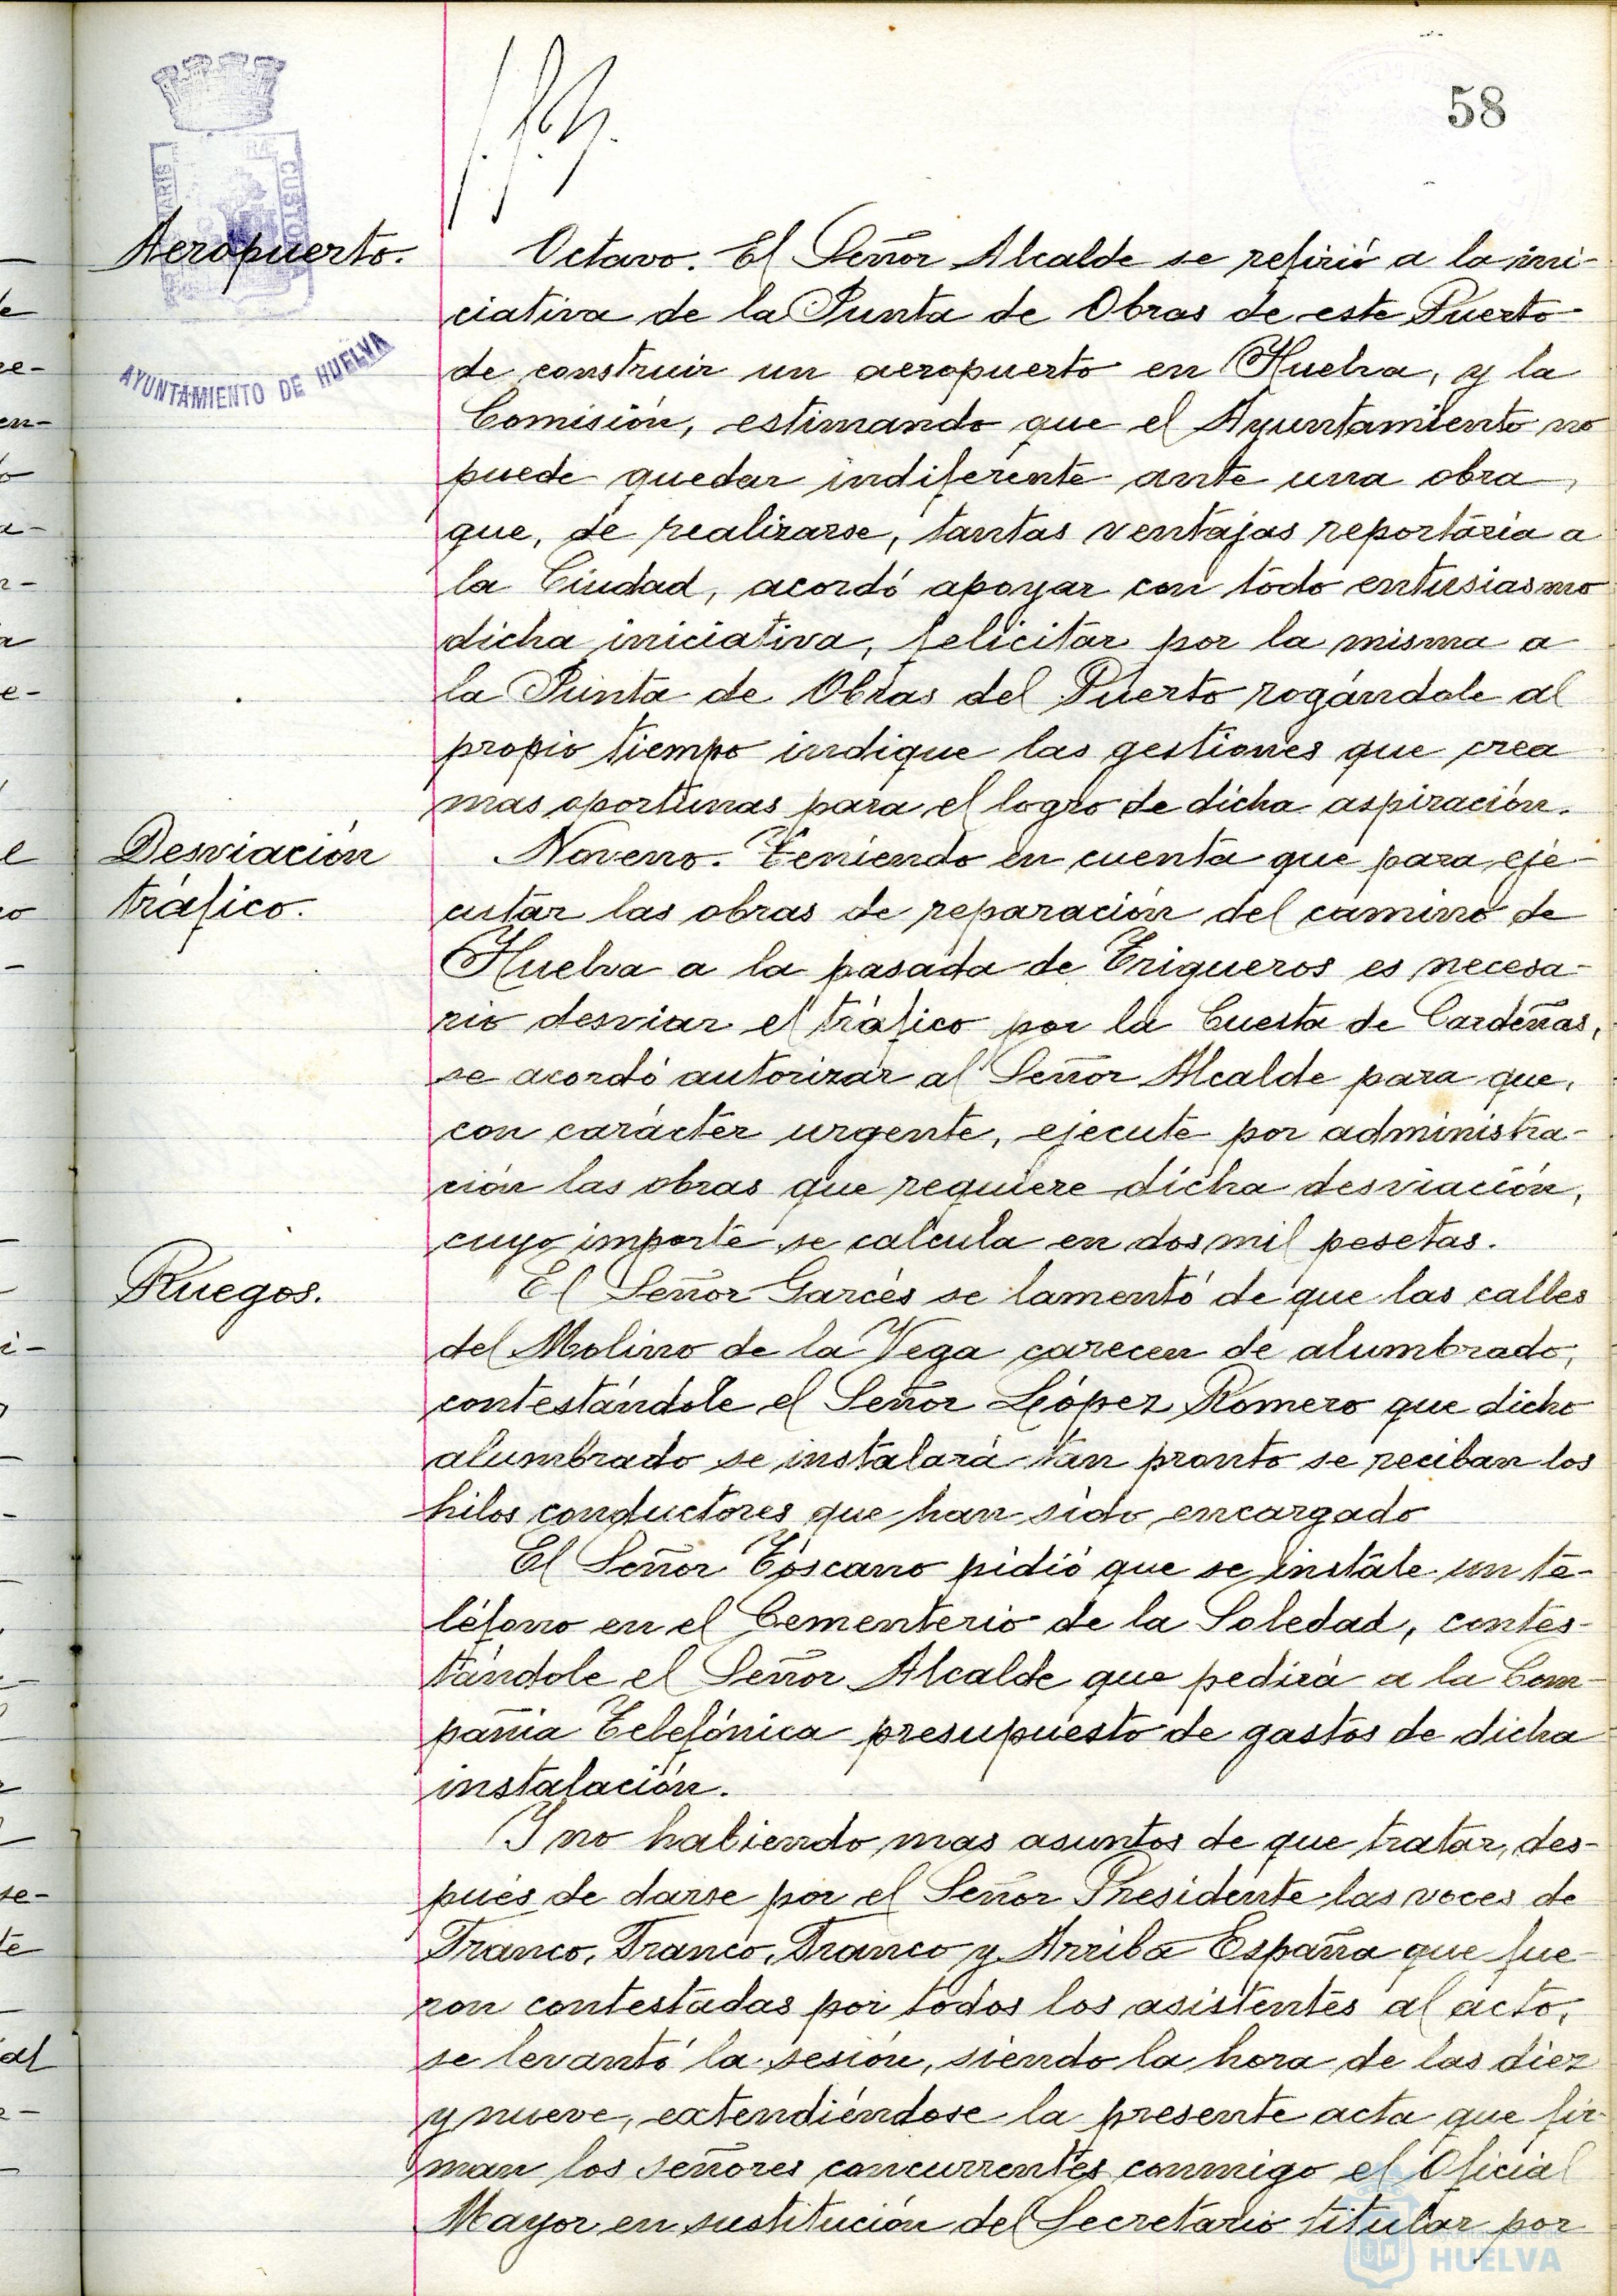 58
Aeropuerto.
Octavo. El Señor Alcalde se refirió a la ini-
ciativa de la Junta de Obras de este Puerto
de construir un aeropuerto en Huelva, y la
Comisión, estimando que el Ayuntamiento no
puede quedar indiferente ante una obra
que, de realizarse, tantas ventajas reportaria a
la Ciudad, acordó apoyar con todo entusiasmo
dicha iniciativa, felicitar por la misma a
la Junta de Obras del Puerto rogándole al
propio tiempo indique las gestiones que crea
mas oportunas para el logro de dicha aspiración.
Desviación
tráfico.
Noveno. Teniendo en cuenta que para eje-
cutar las obras de reparación del camino de
Huelva a la pasada de Trigueros es necesa-
rio desviar el tráfico por la Cuesta de Cardeñas,
se acordó autorizar al Señor Alcalde para que,
con carácter urgente, ejecute por administra-
ción las obras que requiere dicha desviación,
cuyo importe se calcula en dos mil pesetas.
Ruegos.
El Señor Garcés se lamentó de que las calles
del Molino de la Vega carecen de alumbrado,
contestándole el Señor López Romero que dicho
alumbrado se instalará tan pronto se reciban los
hilos conductores que han sido encargado
El Señor Toscano pidió que se instale un te-
léfono en el Cementerio de la Soledad, contes-
tándole el Señor Alcalde que pedirá a la Com-
pañia Telefónica presupuesto de gastos de dicha
instalación.
Y no habiendo mas asuntos de que tratar, des-
pués de darse por el Señor Presidente las voces de
Franco, Franco, Franco y Arriba España que fue
ron contestadas por todos los asistentes al acto,
se levantó la sesión, siendo la hora de las diez
y nueve, extendiéndose la presente acta que fir-
man los señores concurrentes conmigo el Oficial
Mayor en sustitución del Secretario titular por
AYUNTAMIENTO DE HUELVA
HUELVA